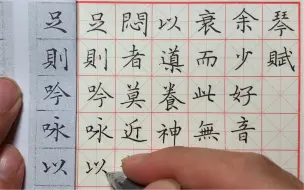 琴賦
余少好音
衰而此無
以導養神
悶者莫近
足則吟咏以
足則吟咏以